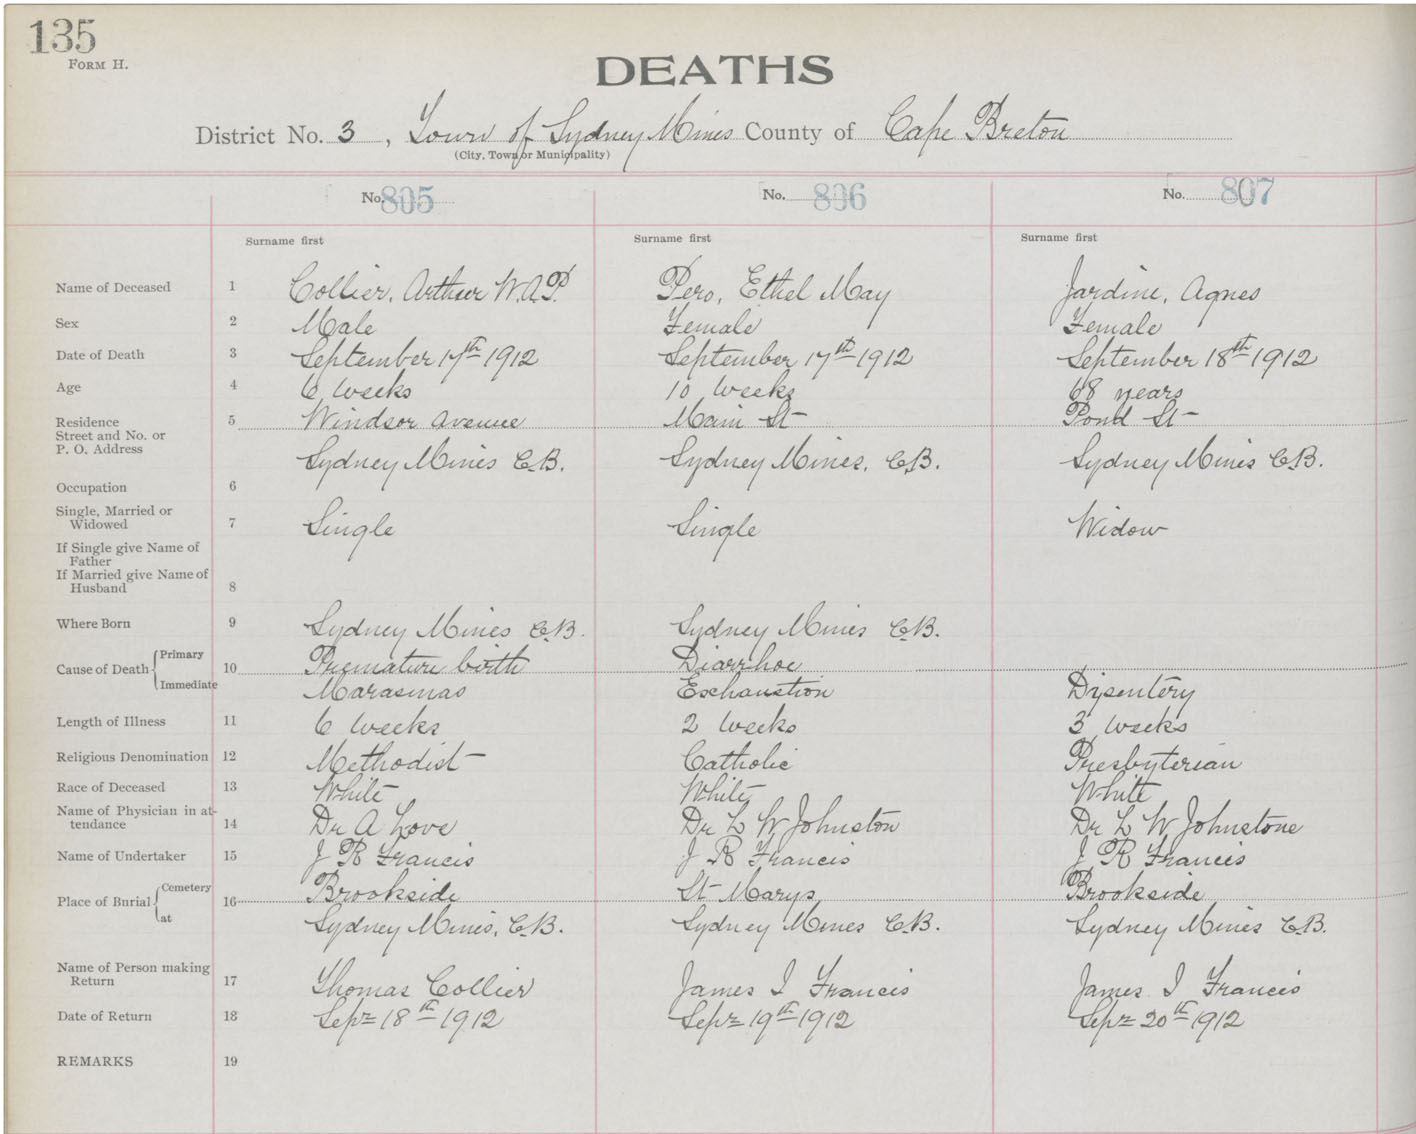 135
FORM H.
DEATHS
District No. 3, Town of Sydney Mines County of Cape Breton
(City, Town or Municipality)
No. 805 No. 806 No. 807
Surname first Surname first Surname first
Name of Deceased 1 Collier, Arthur W.A.P. Pero, Ethel May Jardine, Agnes
Sex 2 Male Female Female
Date of Death 3 September 17th 1912 September 17th 1912 September 18th 1912
Age 4 6 weeks 10 weeks 68 years
Residence 5 Windsor avenue Main St Pond St
Street and No. or
P. O. Address Sydney Mines C.B. Sydney Mines, C.B. Sydney Mines C.B.
Occupation 6
Single, Married or
Widowed 7 Single Single Widow
If Single give Name of
Father
If Married give Name of
Husband 8
Where Born 9 Sydney Mines C.B. Sydney Mines C.B.
Cause of Death Primary 10 Premature birth Diarrhoe
Immediate Marasmas Exhaustion Dysentery
Length of Illness 11 6 weeks 2 weeks 3 weeks
Religious Denomination 12 Methodist Catholic Presbyterian
Race of Deceased 13 White White White
Name of Physician in at-
tendance 14 Dr A Love Dr L W Johnston Dr L W Johnstone
Name of Undertaker 15 J R Francis J R Francis J R Francis
Place of Burial Cemetery 16 Brookside St Marys Brookside
at Sydney Mines, C.B. Sydney Mines C.B. Sydney Mines C.B.
Name of Person making
Return 17 Thomas Collier James I Francis James I Francis
Date of Return 18 Sept 18th 1912 Sept 19th 1912 Sept 20th 1912
REMARKS 19